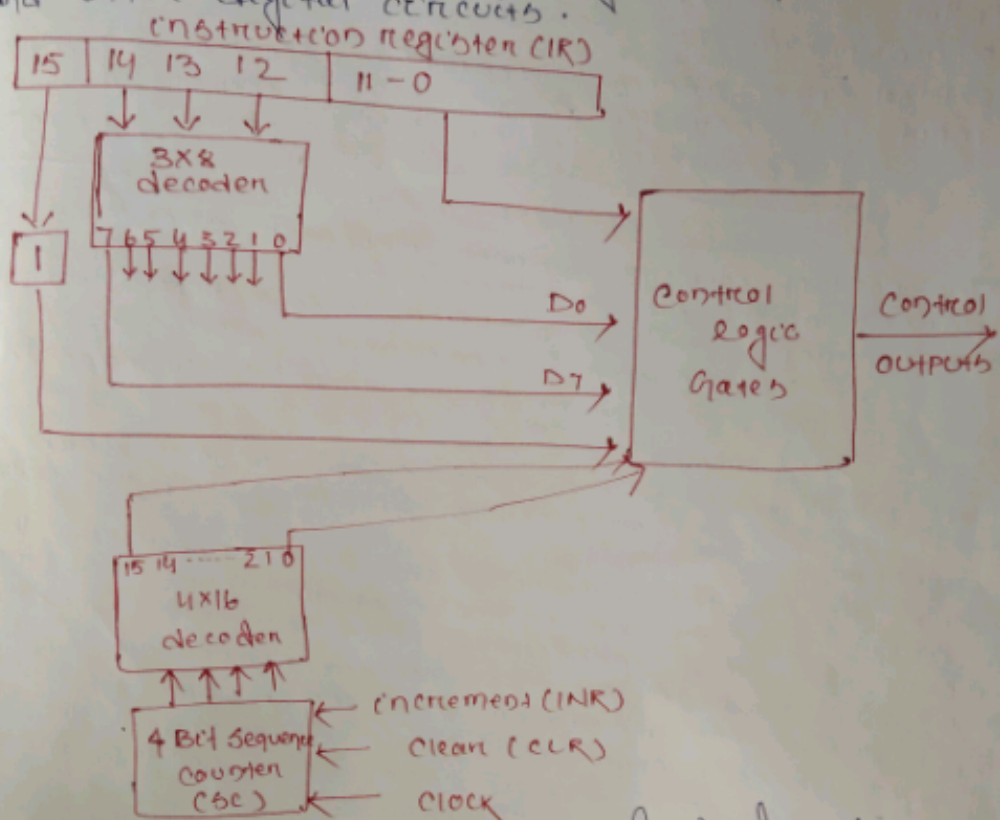 digital circuits.
instruction register (IR)
15 14 13 12 11-0
3x8
decoder
7 6 5 4 3 2 1 0
1
D0
D7
Control
logic
Gates
Control
outputs
15 14 ...... 2 1 0
4x16
decoder
4 Bit Sequence
counter
(SC)
increment (INR)
Clear (CLR)
Clock